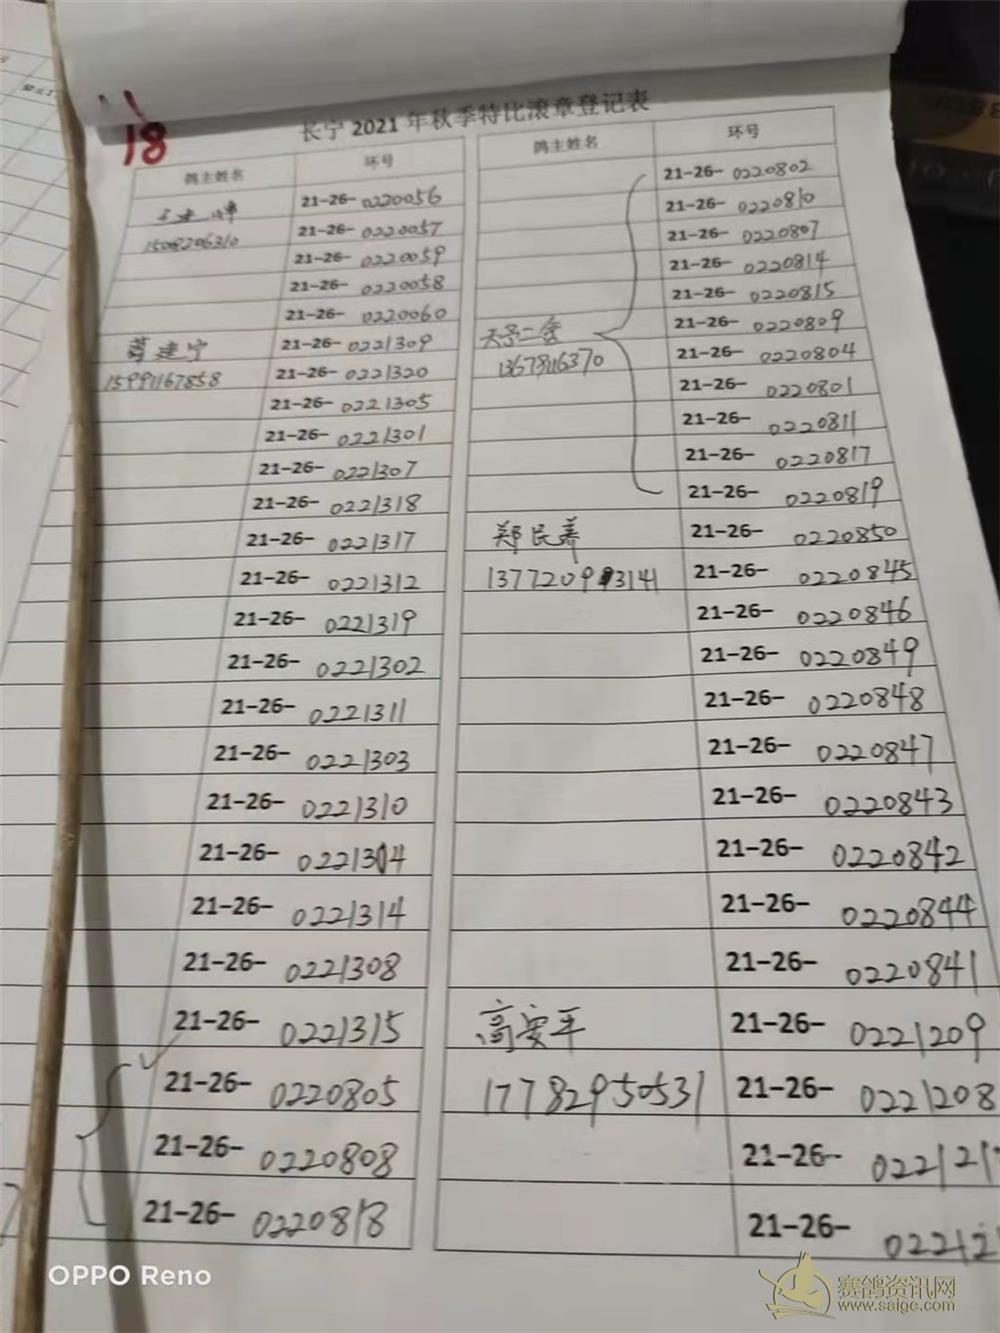 18
长宁 2021 年秋季特比滚章登记表
鸽主姓名 环号
21-26- 0220056
1508206310 21-26- 0220057
21-26- 0220059
21-26- 0220058
21-26- 0220060
建宁 21-26- 0221309
15991167858 21-26- 0221320
21-26- 0221305
21-26- 0221301
21-26- 0221307
21-26- 0221318
21-26- 0221317
21-26- 0221312
21-26- 0221319
21-26- 0221302
21-26- 0221311
21-26- 0221303
21-26- 0221310
21-26- 0221304
21-26- 0221314
21-26- 0221308
21-26- 0221315
21-26- 0220805
21-26- 0220808
21-26- 0220818
鸽主姓名 环号
21-26- 0220802
21-26- 0220810
21-26- 0220807
21-26- 0220814
21-26- 0220815
21-26- 0220809
13678116370 21-26- 0220804
21-26- 0220801
21-26- 0220811
21-26- 0220817
21-26- 0220819
郑民养 21-26- 0220850
21-26- 0220845
21-26- 0220846
21-26- 0220849
21-26- 0220848
21-26- 0220847
21-26- 0220843
21-26- 0220842
21-26- 0220844
21-26- 0220841
高安平 21-26- 0221209
17782950531 21-26- 0221208
21-26- 022121
21-26- 02212
OPPO Reno
赛鸽资讯网
www.saige.com